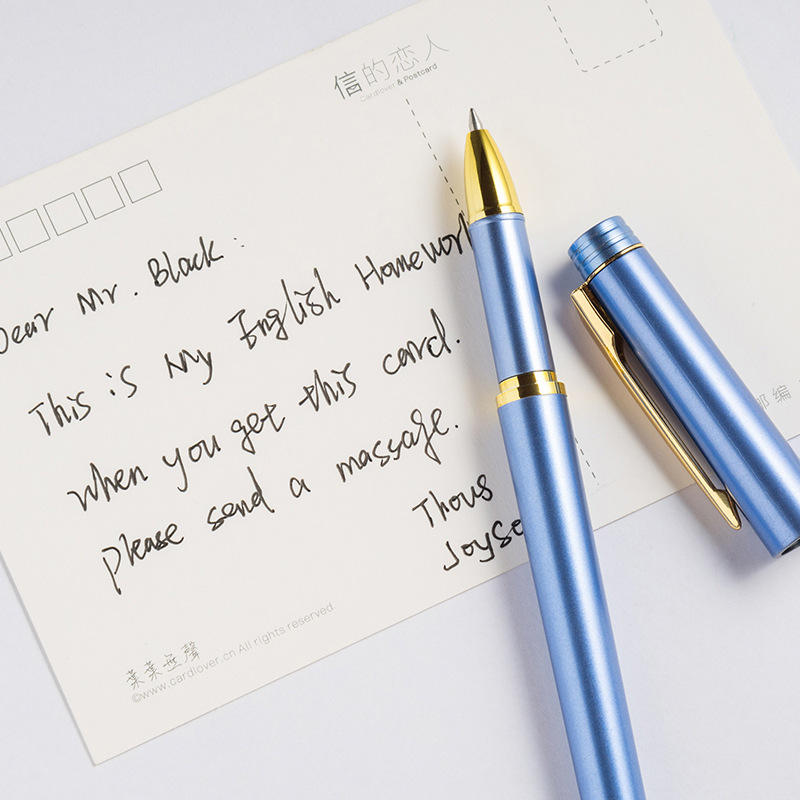 信的恋人
Cardlover & Postcard
Dear Mr. Black:
This is My English Homework
when you get this card.
please send a massage.
Thous
Joyse
葉葉無聲
©www.cardlover.cn All rights reserved.
邮编